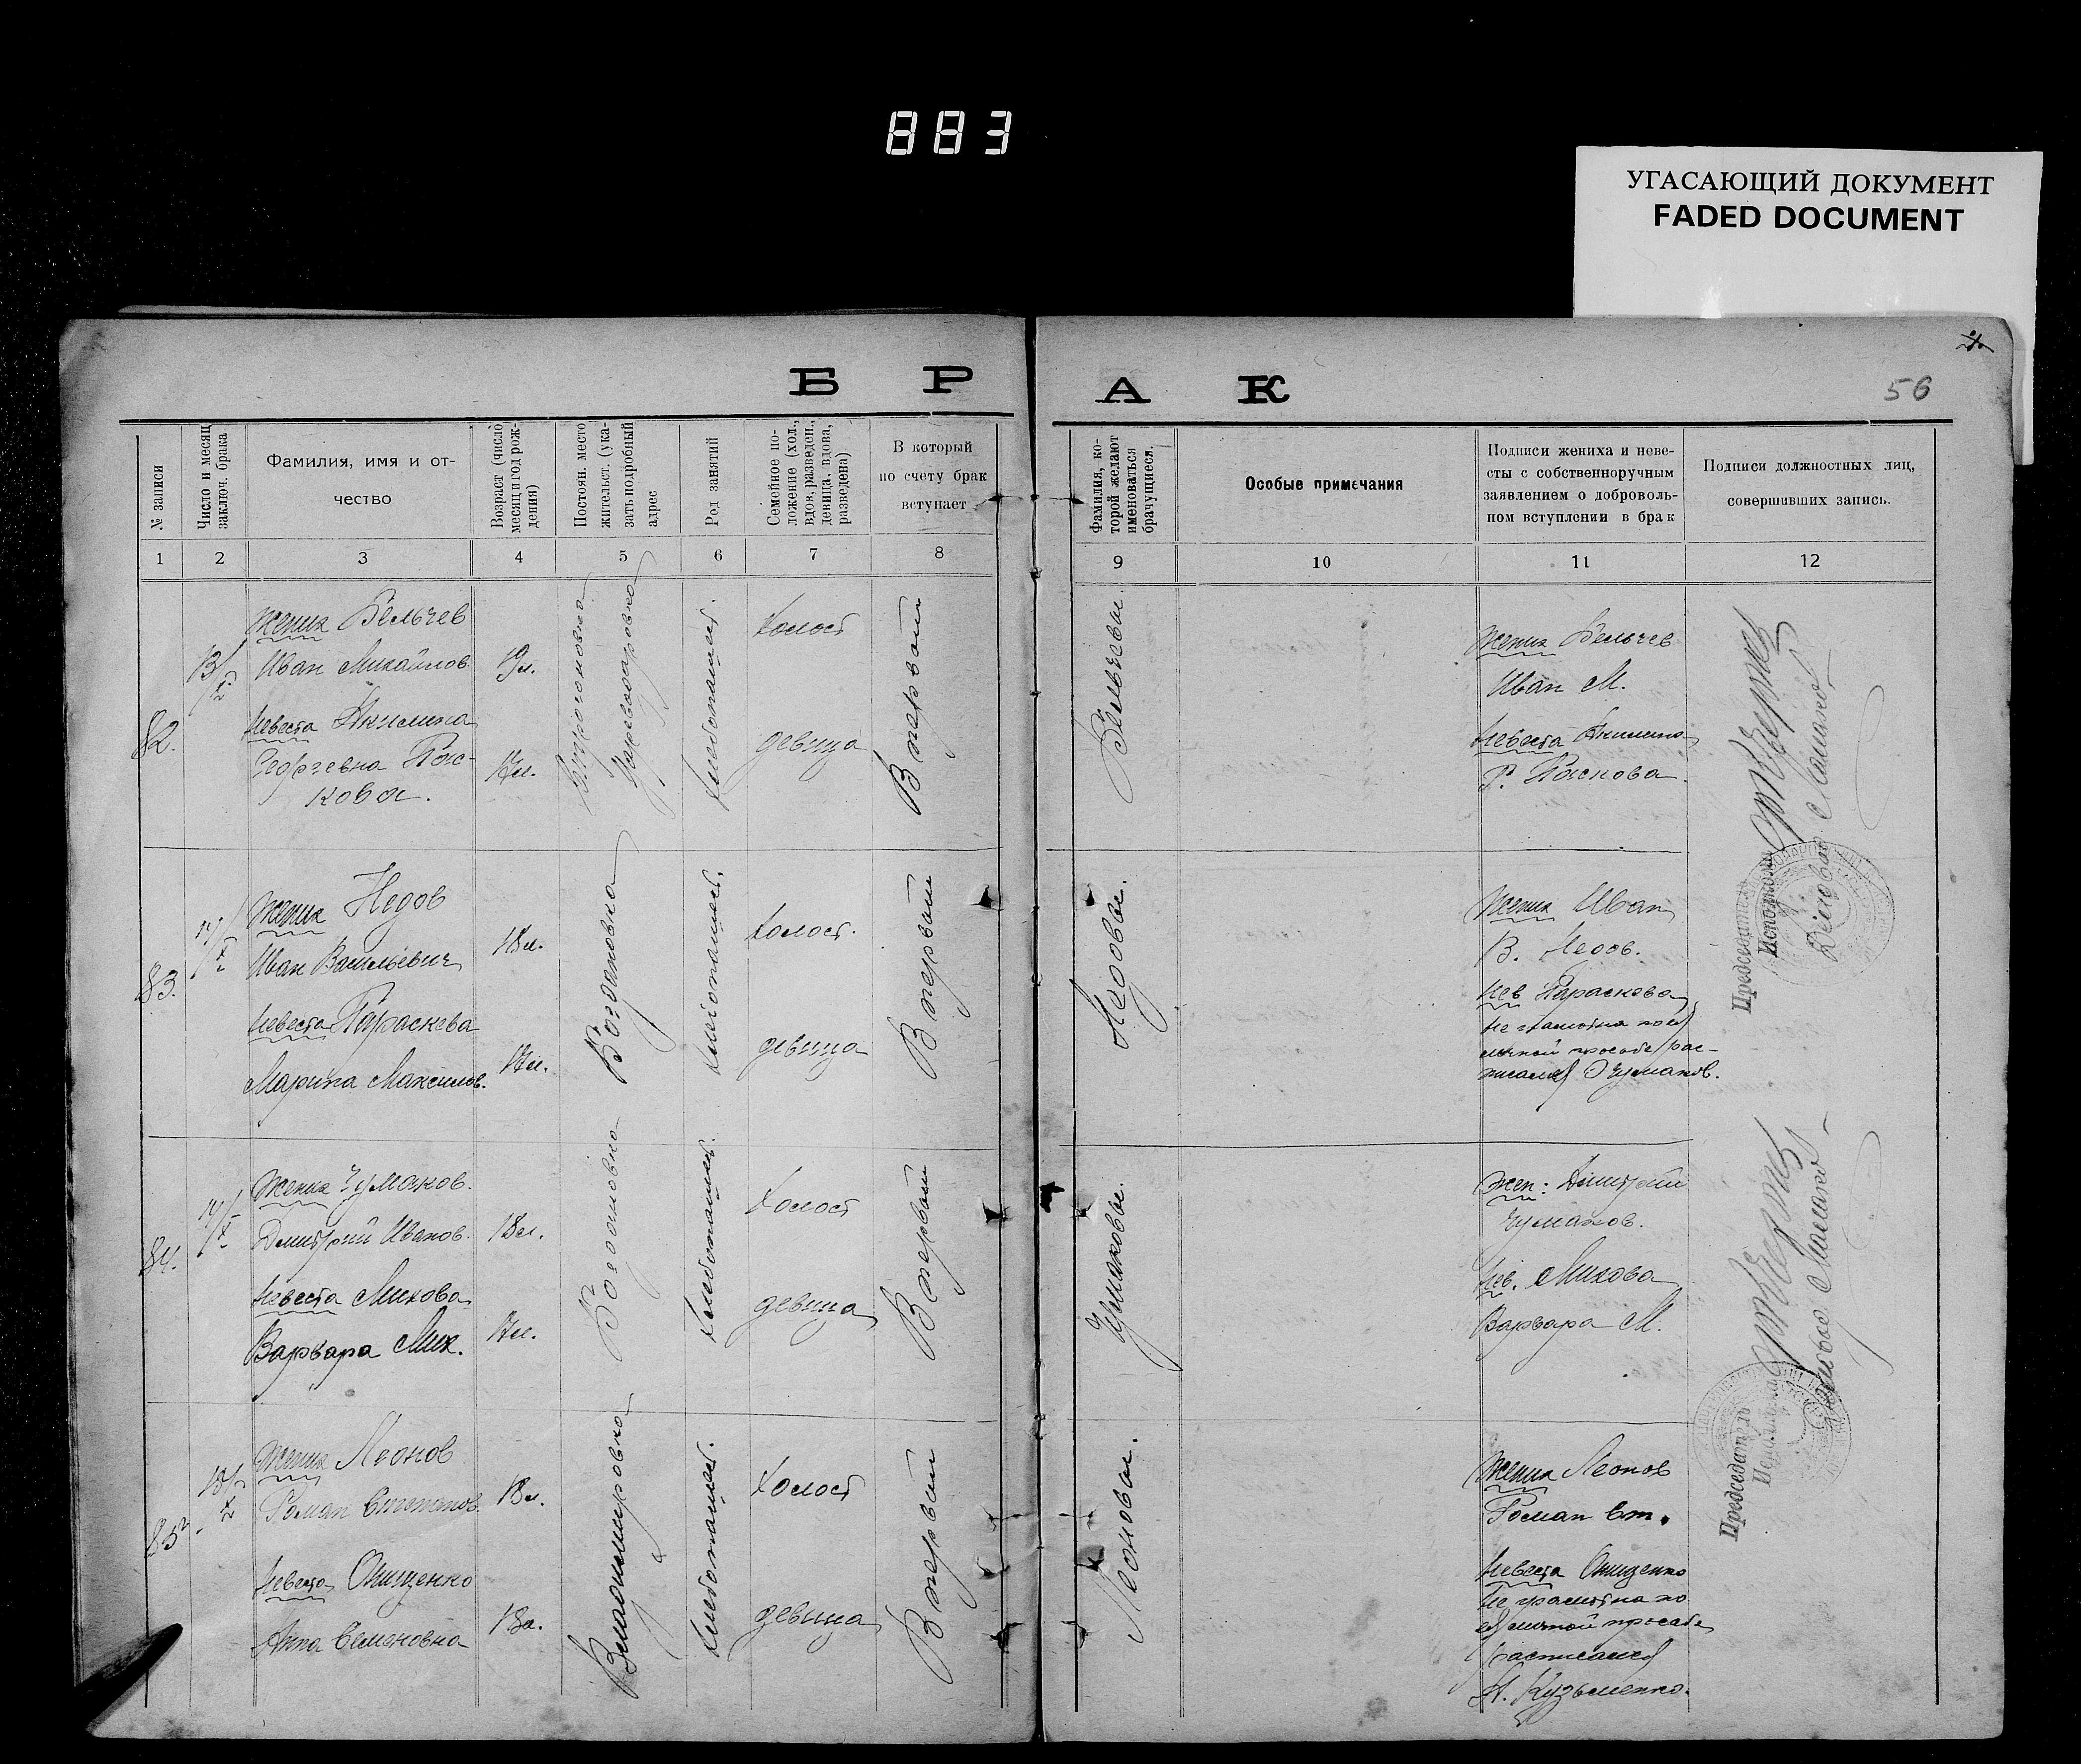 883
УГАСАЮЩИЙ ДОКУМЕНТ
FADED DOCUMENT
56
БРАК
№ записи
Число и месяц
заключ. брака
Фамилия, имя и от-
чество
Возраст (число
месяц и год рож-
дения)
Постоян. место
жительст. (ука-
зать подробный
адрес
Род занятий
Семейное по-
ложение (хол.,
вдов, разведен.,
девица, вдова,
разведена)
В который
по счету брак
вступает
Фамилия, ко-
торой желают
именоваться
брачущиеся.
Особые примечания
Подписи жениха и неве-
сты с собственноручным
заявлением о доброволь-
ном вступлении в брак
Подписи должностных лиц,
совершивших запись.
1 2 3 4 5 6 7 8 9 10 11 12
82.
Жених Бельчев
Иван Михайлов
19 л.
Невеста Акилина
Георгевна Пас-
кова.
17 л.
холост
девица
В первый
Бельчевы.
Жених Бельчев
Иван М.
Невеста Акилина
Г. Паскова
83.
Жених Недов
Иван Васильевич
18 л.
Невеста Параскева
Марина Максимов.
17 л.
Богдановка
холост.
девица
В первый
Недовы.
Жених Иван
В. Недов.
Нев Параскева
не грамотна по её
личной просьбе рас-
писался Чумаков.
84.
Жених Чумаков.
Дмитрий Иванов.
18 л.
Невеста Михова
Варвара Мих.
17 л.
Богдановка
холост
девица
В первый
Чумаковы.
Жен: Дмитрий
Чумаков.
Нев. Михова
Варвара М.
85
Жених Леонов
Роман Степанов.
18 л.
Невеста Онищенко
Анна Семеновна
18 л.
Владимировка
холост
девица
В первый
Леоновы.
Жених Леонов
Роман Ст.
Невеста Онищенко
не грамотна по
её личной просьбе
расписался
Н. Кузьменко.
Председатель
Исполкома
Председатель
Исполкома